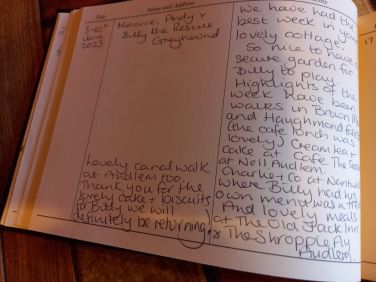 Date
Name and Address
3-10th
June
2023
Melanie, Andy &
Billy the Rescue
Greyhound
We have had the
best week in your
lovely cottage.
So nice to have a
secure garden for
Billy to play.
Highlights of the
week have been
walks in Brown
and Haughmond
(the cafe lunch was
lovely) Cream tea &
cake at Cafe The
at No11 Audlem.
Char & Co at Nantwich
where Billy had his
own menu was a treat
And lovely meals
at The Old Jack Inn
& The Shroppie Fly
Audlem.
Lovely canal walk
at Audlem too.
Thank you for the
lovely cake & biscuits
to Billy we will
definitely be returning
17